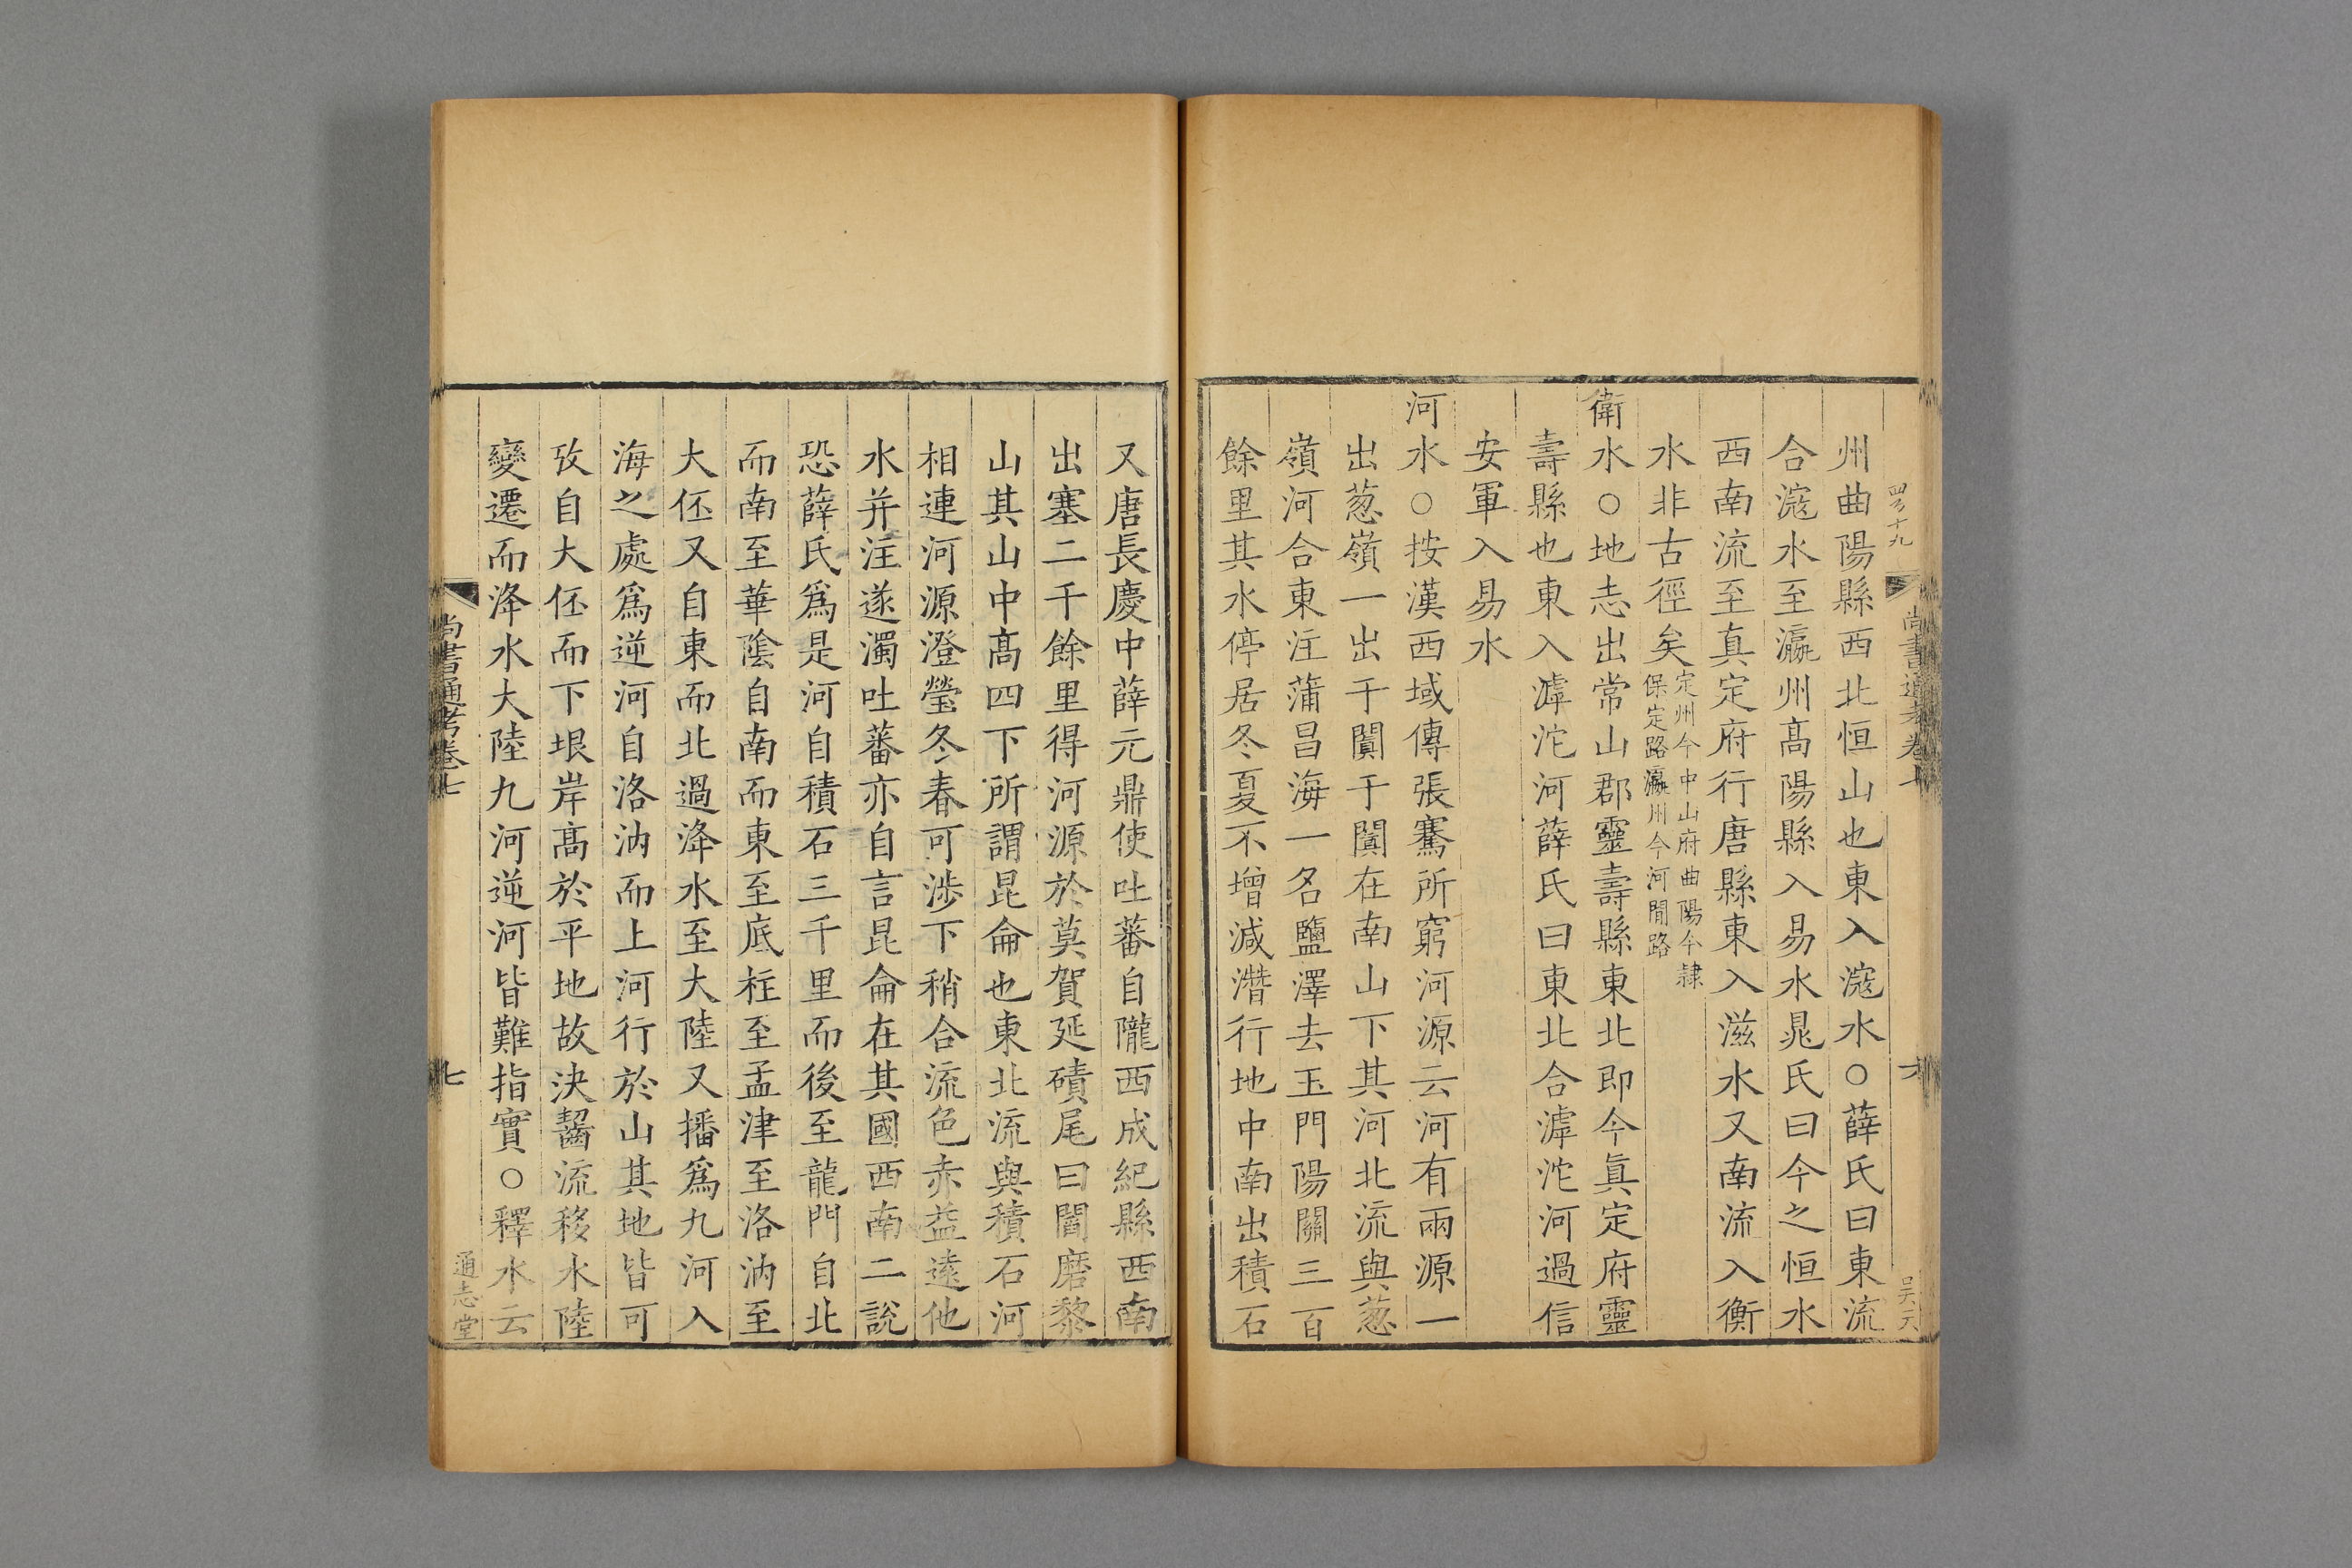 四百十九
尚書通考卷七
六
吴元
州曲陽縣西北恒山也東入㴲水○薛氏曰東流
合㴲水至瀛州髙陽縣入易水晁氏曰今之恒水
西南流至真定府行唐縣東入滋水又南流入衡
水非古徑矣定州今中山府曲陽今隷
保定路瀛州今河閒路
衛水○地志出常山郡靈壽縣東北即今眞定府靈
壽縣也東入滹沱河薛氏曰東北合滹沱河過信
安軍入易水
河水○按漢西域傳張騫所窮河源云河有兩源一
出葱嶺一出于闐于闐在南山下其河北流與葱
嶺河合東注蒲昌海一名鹽澤去玉門陽關三百
餘里其水停居冬夏不增減濳行地中南出積石
又唐長慶中薛元鼎使吐蕃自隴西成紀縣西南
出塞二千餘里得河源於莫賀延磧尾曰閣磨黎
山其山中髙四下所謂昆侖也東北流與積石河
相連河源澄瑩冬春可涉下稍合流色赤益遠他
水并注遂濁吐蕃亦自言昆侖在其國西南二說
恐薛氏爲是河自積石三千里而後至龍門自北
而南至華陰自南而東至底柱至孟津至洛汭至
大伾又自東而北過洚水至大陸又播爲九河入
海之處爲逆河自洛汭而上河行於山其地皆可
攷自大伾而下垠岸髙於平地故決齧流移水陸
變遷而洚水大陸九河逆河皆難指實○釋水云
尚書通考卷七
七
通志堂